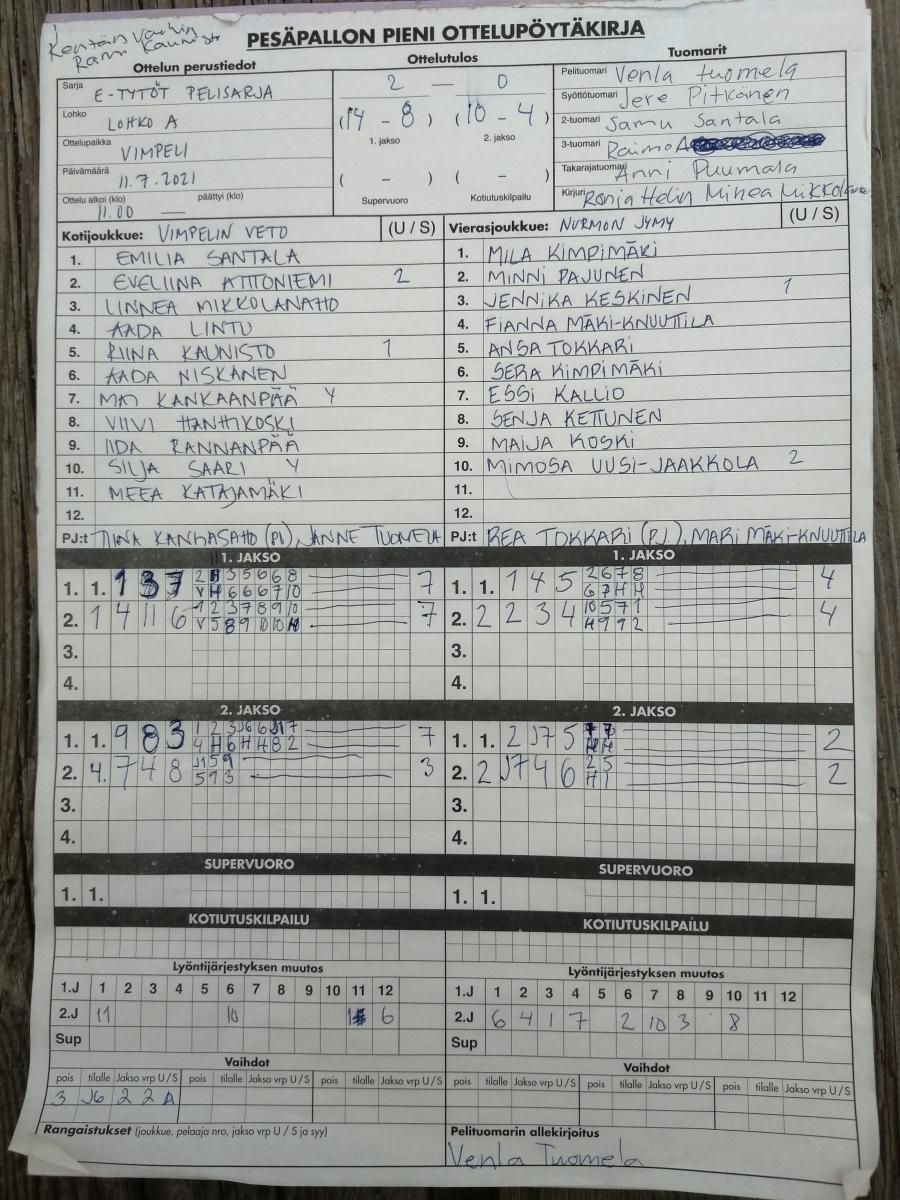 Kentän vanhin
Rami Kaunisto
PESÄPALLON PIENI OTTELUPÖYTÄKIRJA
Ottelun perustiedot
Ottelutulos
Tuomarit
Sarja E-TYTÖT PELISARJA
Lohko LOHKO A
Ottelupaikka VIMPELI
Päivämäärä 11.7.2021
Ottelu alkoi (klo) päättyi (klo)
11.00 —
2 — 0
(14 - 8) (10 - 4)
1. jakso 2. jakso
( - ) ( - )
Supervuoro Kotiutuskilpailu
Pelituomari Venla Tuomela
Syöttötuomari Jere Pitkänen
2-tuomari Samu Santala
3-tuomari Raimo A
Takarajatuomari Anni Puumala
Kirjuri Ronja Helin Minea
Kotijoukkue: VIMPELIN VETO (U / S)
1. EMILIA SANTALA
2. EVELIINA ATTTONIEMI 2
3. LINNEA MIKKOLANAHO
4. AADA LINTU
5. RIINA KAUNISTO 1
6. AADA NISKANEN
7. KANKAANPÄÄ Y
8. VIIVI HANHIKOSKI
9. IIDA RANNANPÄÄ
10. SILJA SAARI Y
11. MEEA KATAJAMÄKI
12.
PJ:t TIINA KANGASAHO (PJ), JANNE TUOMELA
Vierasjoukkue: NURMON JYMY (U / S)
1. MILA KIMPIMÄKI
2. MINNI PAJUNEN
3. JENNIKA KESKINEN 1
4. FIANNA MÄKI-KNUUTTILA
5. ANSA TOKKARI
6. SERA KIMPIMÄKI
7. ESSI KALLIO
8. SENJA KETTUNEN
9. MAIJA KOSKI
10. MIMOSA UUSI-JAAKKOLA 2
11.
12.
PJ:t REA TOKKARI (PJ), MARI MÄKI-KNUUTTILA
1. JAKSO
1. 1. 1 3 7 2 H 3 5 6 6 8 7
V H 6 6 6 7 10
2. 1 4 11 6 1 2 3 7 8 9 10 7
V 5 8 9 10 10 H
3.
4.
1. JAKSO
1. 1. 1 4 5 2 6 7 8 4
6 7 H H
2. 2 2 3 4 10 5 7 1 4
H 9 9 2
3.
4.
2. JAKSO
1. 1. 9 8 3 1 2 3 J6 6 J1 7 7
4 H 6 H H 8 2
2. 4. 7 4 8 J1 5 9 3
5 9 3
3.
4.
2. JAKSO
1. 1. 2 J7 5 7 7 2
H H
2. 2 J7 4 6 2 5 2
H 1
3.
4.
SUPERVUORO
1. 1.
SUPERVUORO
1. 1.
KOTIUTUSKILPAILU
KOTIUTUSKILPAILU
Lyöntijärjestyksen muutos
1.J 1 2 3 4 5 6 7 8 9 10 11 12
2.J 11 10 6
Sup
Lyöntijärjestyksen muutos
1.J 1 2 3 4 5 6 7 8 9 10 11 12
2.J 6 4 1 7 2 10 3 8
Sup
Vaihdot
pois tilalle Jakso vrp U / S pois tilalle Jakso vrp U / S pois tilalle Jakso vrp U / S
3 J6 2 2 A
Vaihdot
pois tilalle Jakso vrp U / S pois tilalle Jakso vrp U / S pois tilalle Jakso vrp U / S
Rangaistukset (joukkue, pelaaja nro, jakso vrp U / S ja syy)
Pelituomarin allekirjoitus
Venla Tuomela